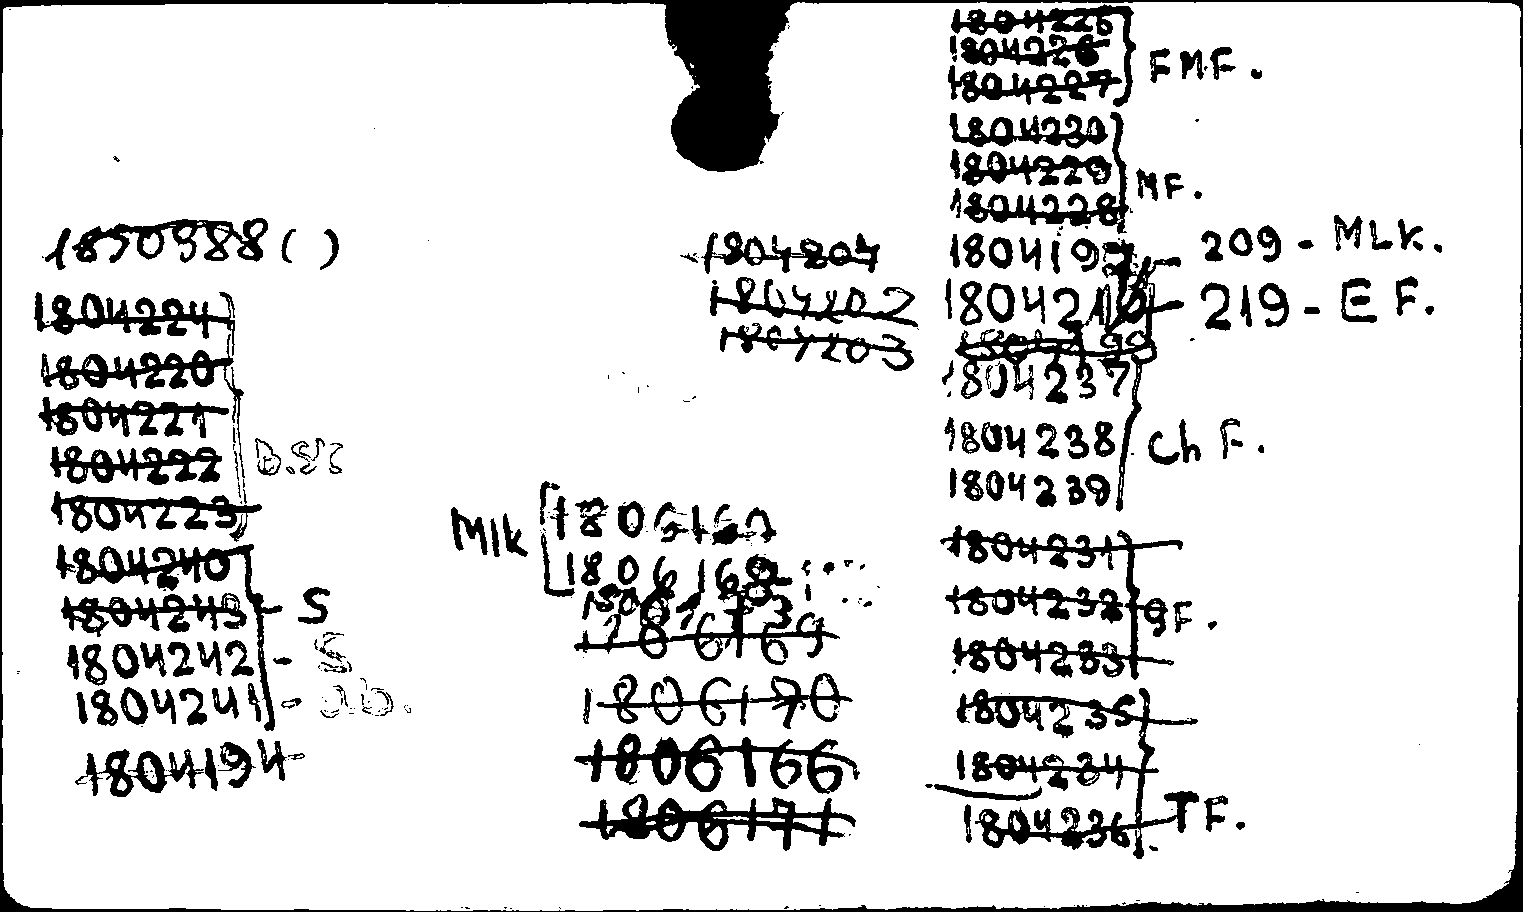 1850988 ( )
1804224
1804220
1804221
1804222
1804223
1804240
1804243 - S
1804242 - S
1804241 - ab.
1804194
1804204
1804202
1804203
Mlk
1806168
1806169
1806170
1806166
1806171
1804225
1804226
1804227
FMF.
1804230
1804229
1804228
MF.
180419 - 209 - MLK.
1804210 - 219 - EF.
1804237
1804238
1804239
Ch F.
1804231
1804232
1804233
9F.
1804235
1804234
1804236
TF.